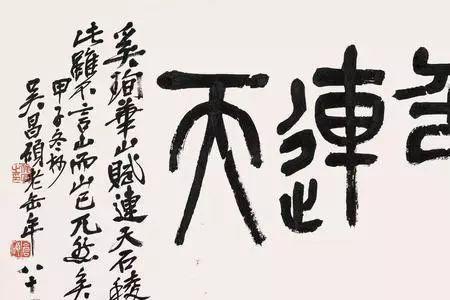 連天
奚珣華山賦連天石稜
此雖不言山而山已兀然矣
甲子冬杪
吳昌碩老缶年八十